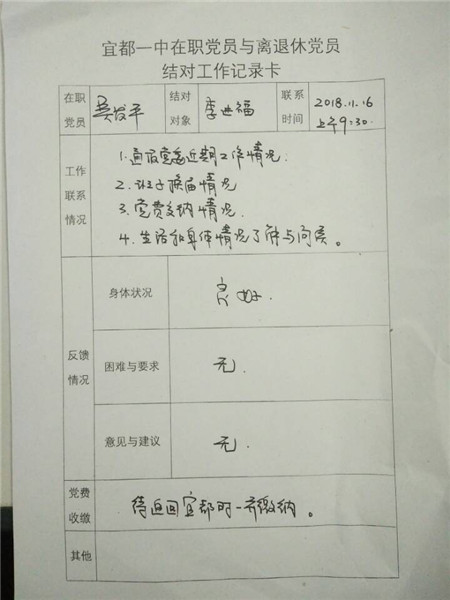 宜都一中在职党员与离退休党员
结对工作记录卡
在职党员 吴发平 结对对象 李世福 联系时间 2018.11.16 上午9:30.
工作联系情况
1.通报党委近期工作情况.
2.班子换届情况
3.党费交纳情况.
4.生活和身体情况了解与问候。
反馈情况
身体状况 良好.
困难与要求 无.
意见与建议 无.
党费收缴 待返回宜都时一齐缴纳。
其他